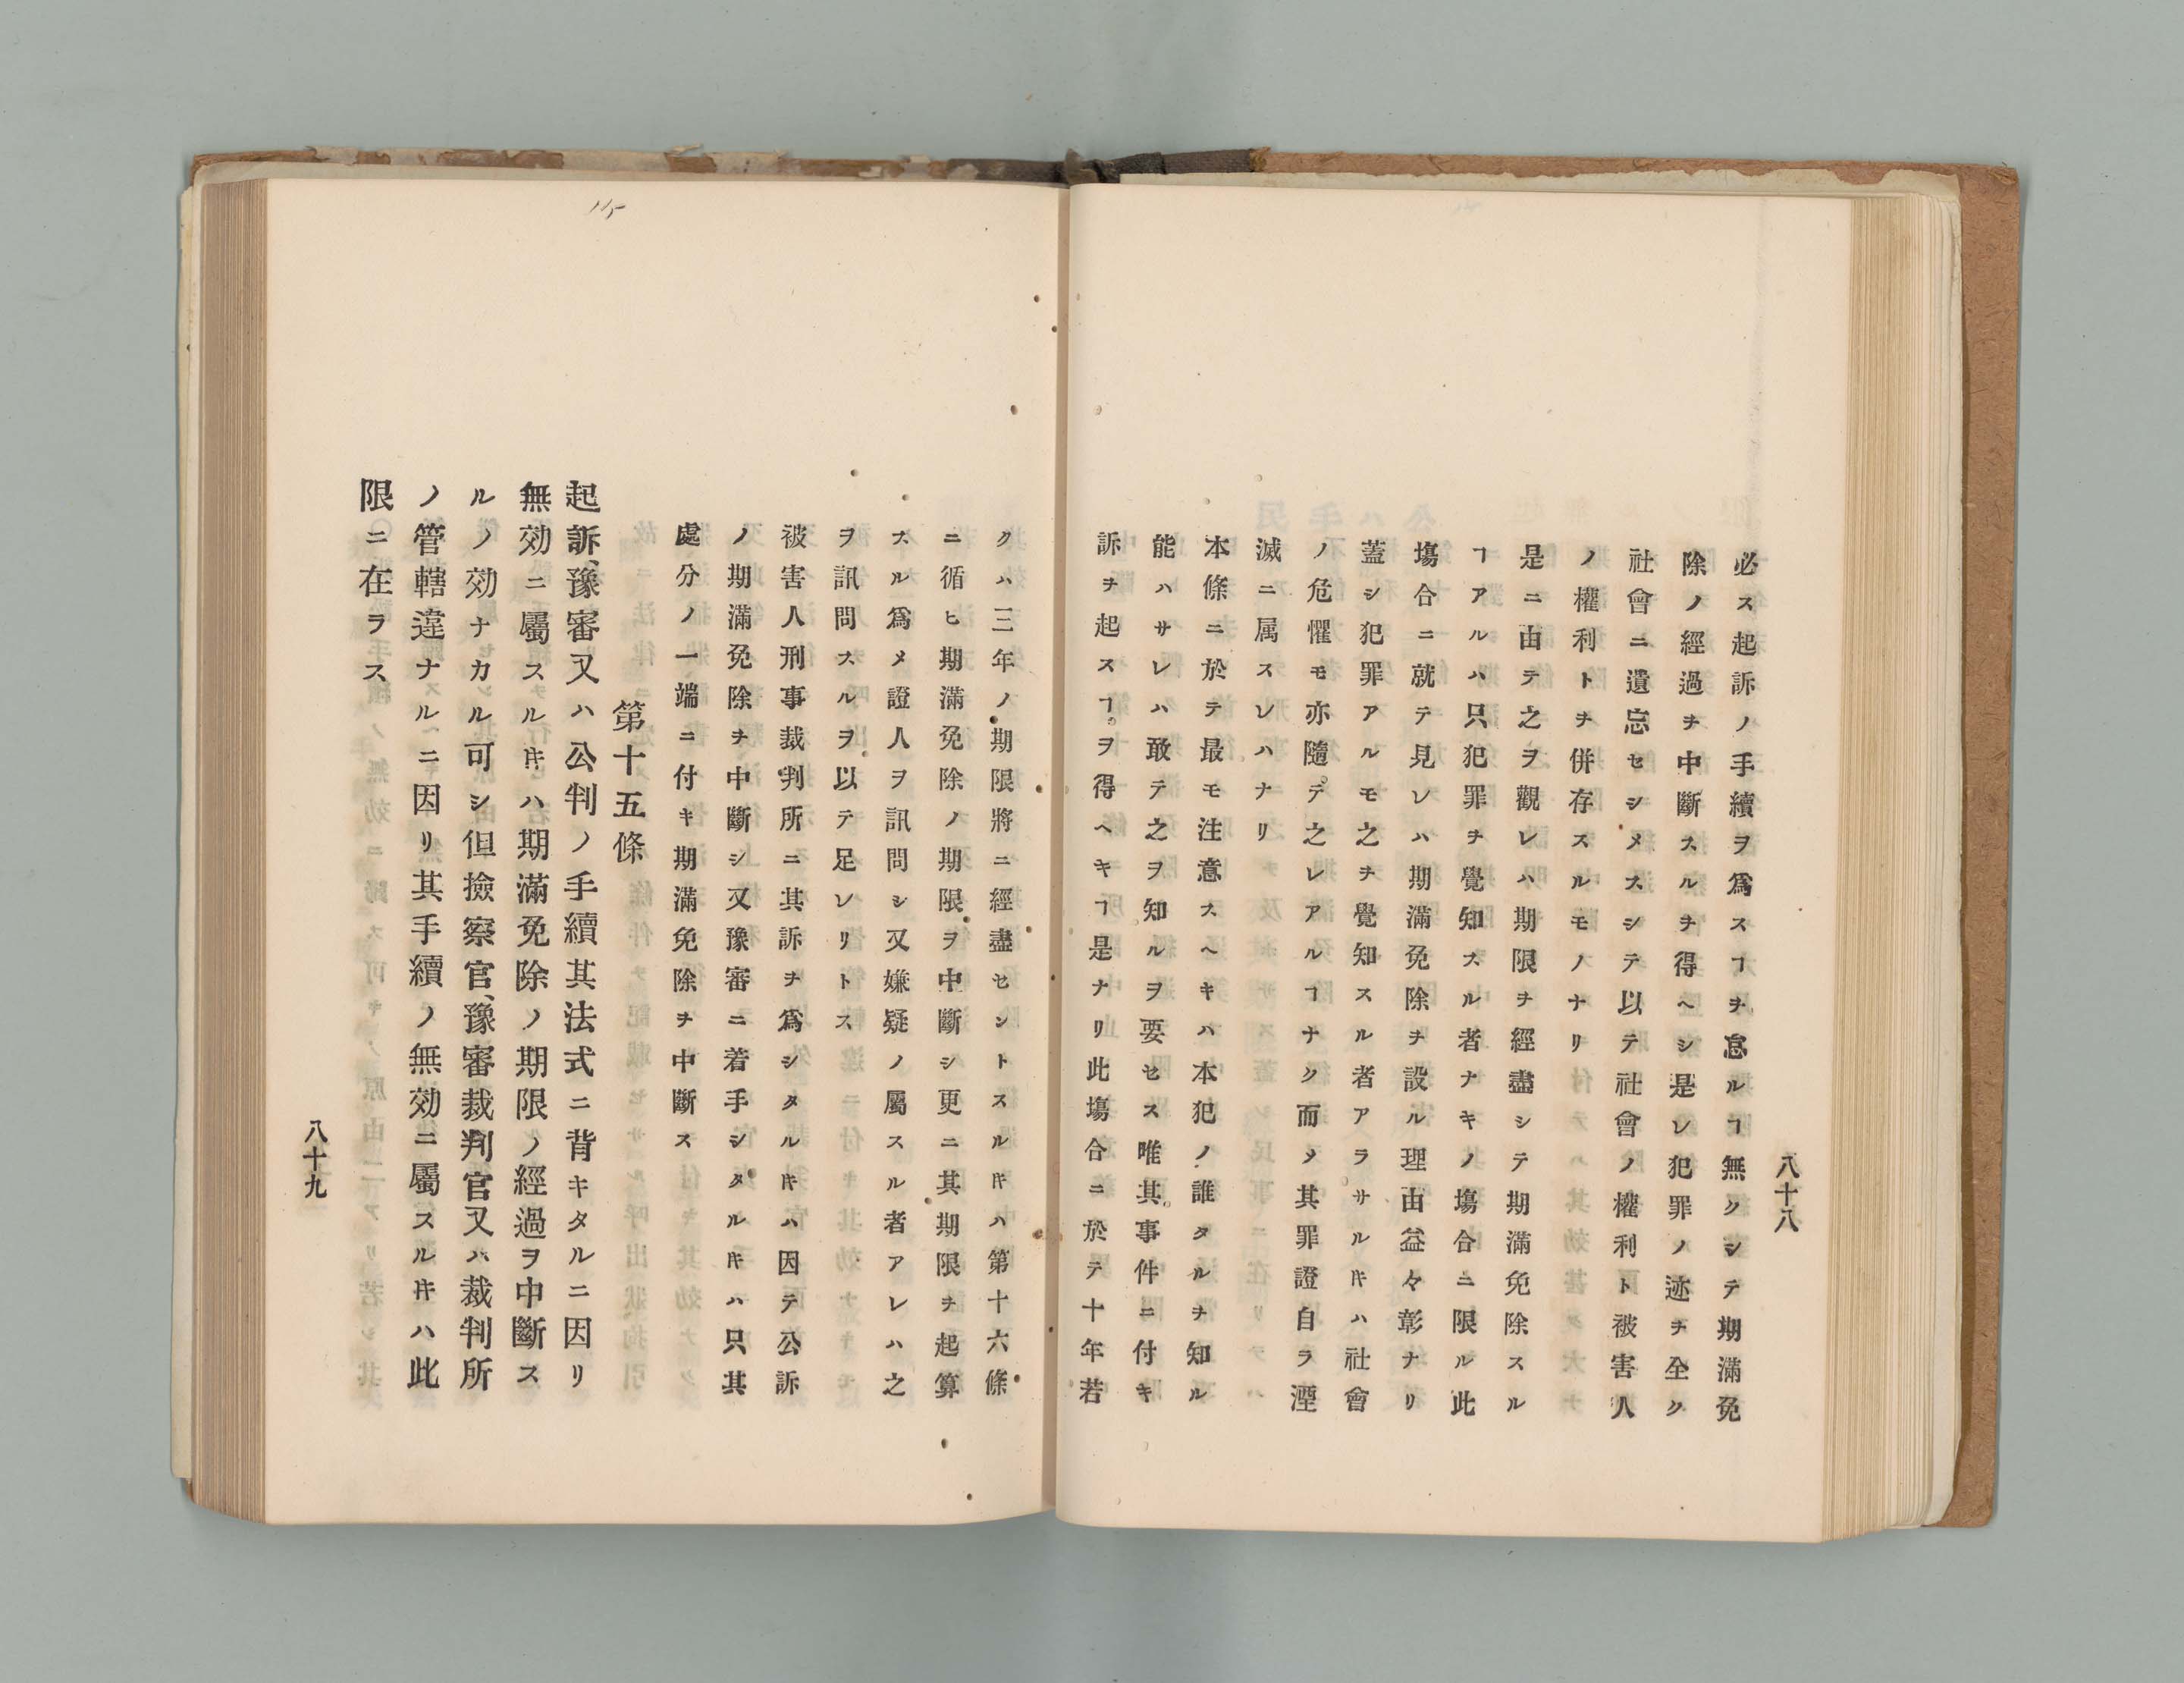 八十八
必ス起訴ノ手續ヲ爲スヿヲ怠ルヿ無クシテ期滿免
除ノ經過ヲ中斷スルヲ得ヘシ是レ犯罪ノ迹ヲ全ク
社會ニ遺忘セシメスシテ以テ社會ノ權利ト被害人
ノ權利トヲ併存スルモノナリ
是ニ由テ之ヲ觀レハ期限ヲ經盡シテ期滿免除スル
ヿアルハ只犯罪ヲ覺知スル者ナキノ塲合ニ限ル此
塲合ニ就テ見レハ期滿免除ヲ設ル理由益々彰ナリ
蓋シ犯罪アルモ之ヲ覺知スル者アラサルㇳキハ社會
ノ危懼モ亦隨テ之レアルヿナク而メ其罪證自ラ湮
滅ニ属スレハナリ
本條ニ於テ最モ注意スヘキハ本犯ノ誰タルヲ知ル
能ハサレハ敢テ之ヲ知ルヲ要セス唯其事件ニ付キ
訴ヲ起スヿヲ得ヘキヿ是ナリ此塲合ニ於テ十年若
クハ三年ノ期限將ニ經盡セントスルㇳキハ第十六條
ニ循ヒ期滿免除ノ期限ヲ中斷シ更ニ其期限ヲ起算
スル爲メ證人ヲ訊問シ又嫌疑ノ屬スル者アレハ之
ヲ訊問スルヲ以テ足レリトス
被害人刑事裁判所ニ其訴ヲ爲シタルㇳキハ因テ公訴
ノ期滿免除ヲ中斷シ又豫審ニ着手シタルㇳキハ只其
處分ノ一端ニ付キ期滿免除ヲ中斷ス
第十五條
起訴、豫審又ハ公判ノ手續其法式ニ背キタルニ因リ
無効ニ屬スルㇳキハ期滿免除ノ期限ノ經過ヲ中斷ス
ルノ効ナカル可シ但撿察官、豫審裁判官又ハ裁判所
ノ管轄違ナルニ因リ其手續ノ無効ニ屬スルㇳキハ此
限ニ在ラス
八十九